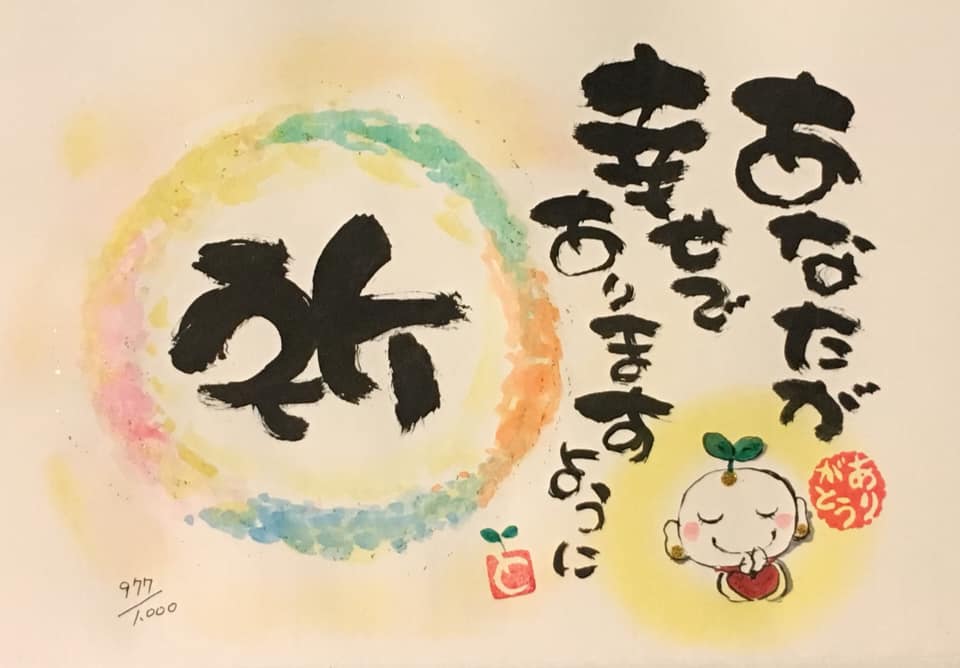 あなたが
幸せで
あります
ように
祈
ありがとう
と
977/1,000